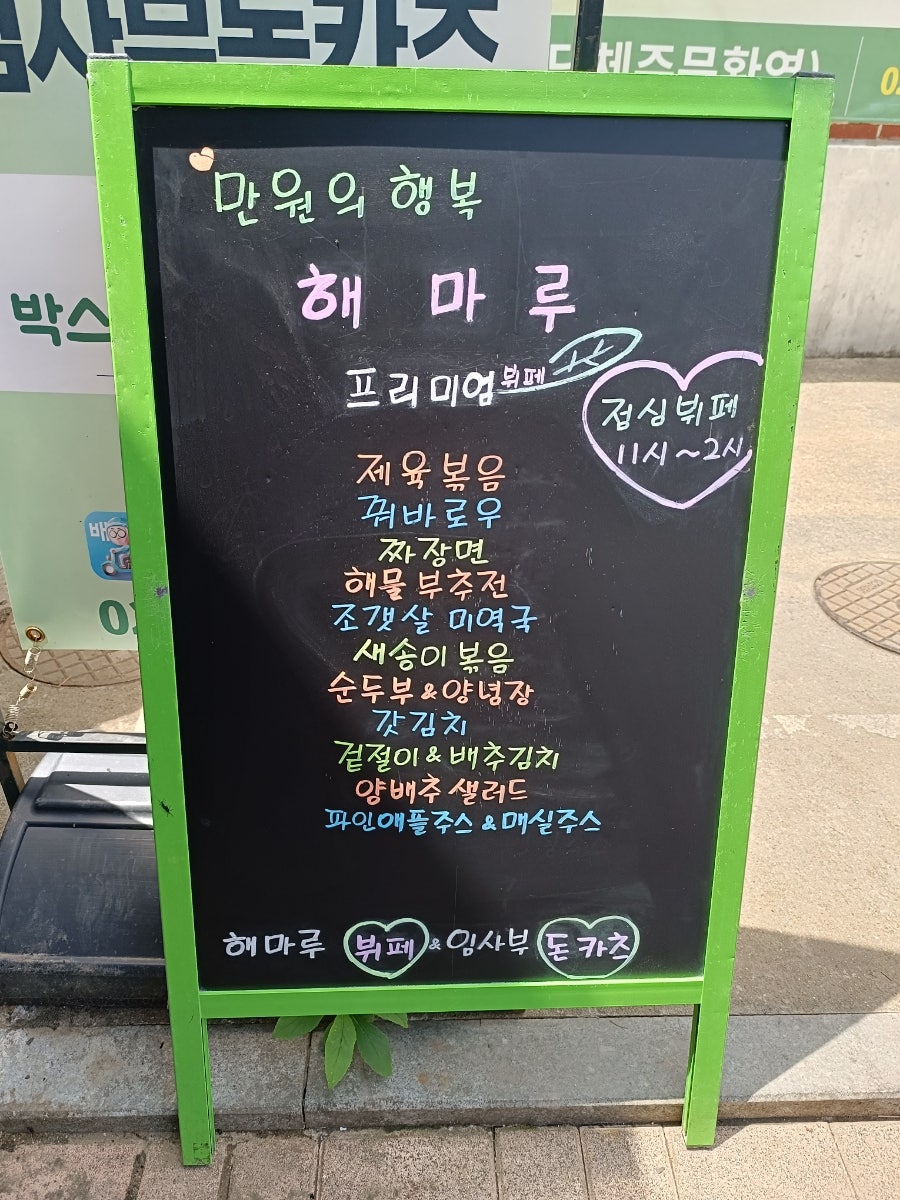 임사부돈카츠
단체주문환영)
만원의 행복
해마루
프리미엄 뷔페
점심뷔페
11시~2시
제육볶음
꿔바로우
짜장면
해물부추전
조갯살 미역국
새송이볶음
순두부&양념장
갓김치
겉절이&배추김치
양배추샐러드
파인애플주스&매실주스
해마루 뷔페 & 임사부 돈카츠
박스
배
02